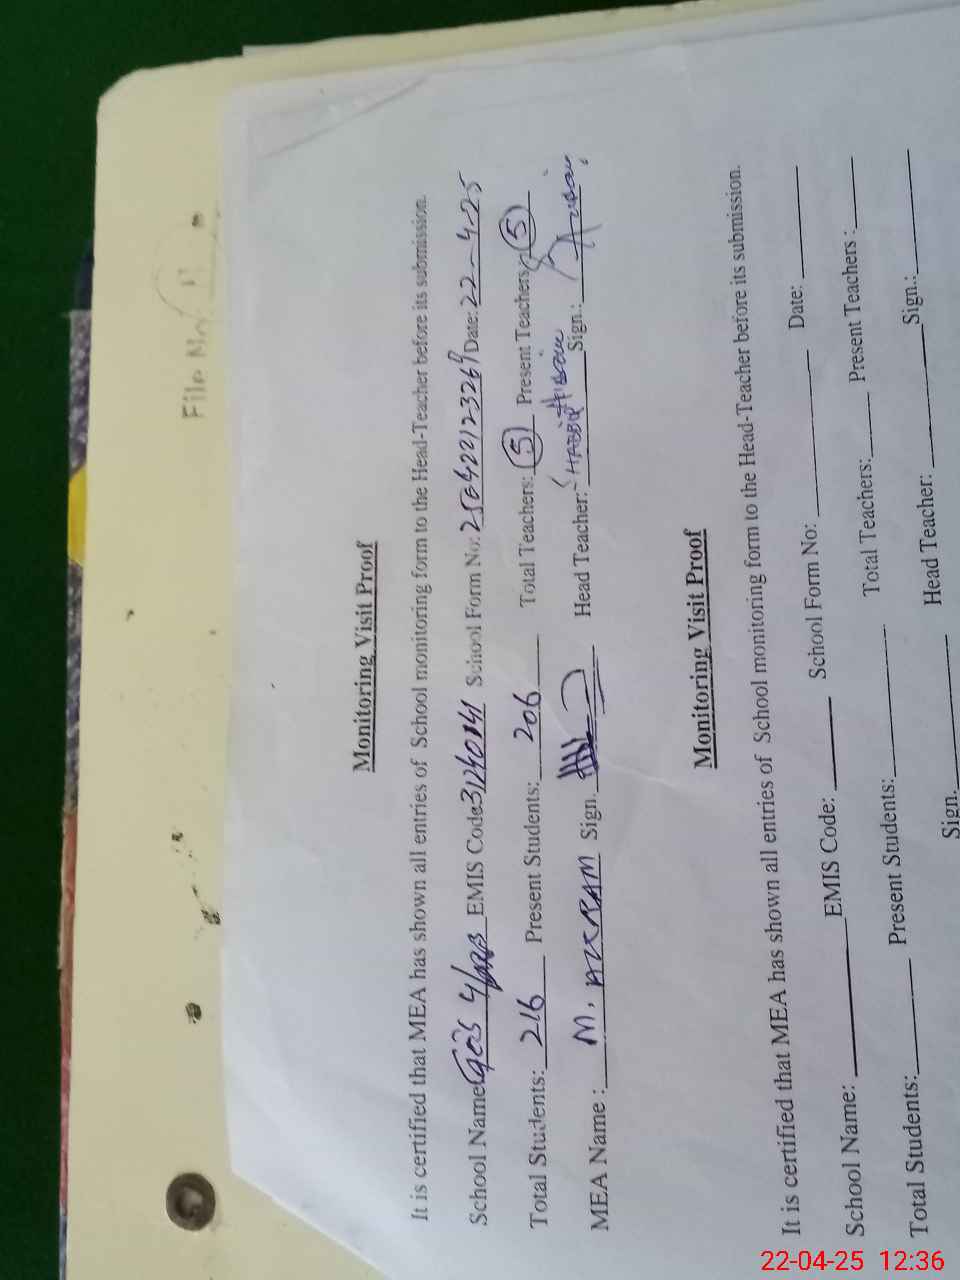 File No.
Monitoring Visit Proof
It is certified that MEA has shown all entries of School monitoring form to the Head-Teacher before its submission.
School Name: EMIS Code 31240141 School Form No: Date: 22-4-25
Total Students: 216 Present Students: 206 Total Teachers: 5 Present Teachers 5
MEA Name : M. AKRAM Sign. Head Teacher: Sign.:
Monitoring Visit Proof
It is certified that MEA has shown all entries of School monitoring form to the Head-Teacher before its submission.
School Name: EMIS Code: School Form No: Date:
Total Students: Present Students: Total Teachers: Present Teachers :
Sign. Head Teacher: Sign.:
22-04-25 12:36